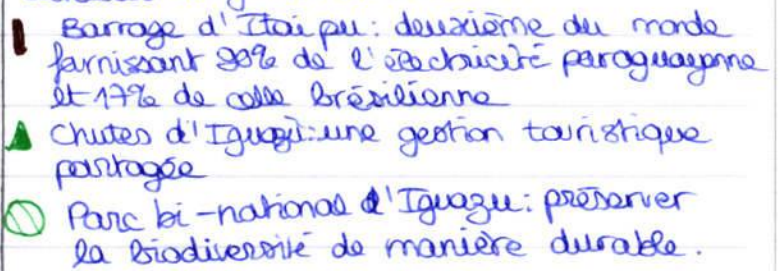 Barrage d'Itaipu: deuxième du monde
furnissant 90% de l'électricité paraguayenne
et 17% de celle brésilienne
Chutes d'Iguazu: une gestion touristique
partagée
Parc bi-national d'Iguazu: préserver
la biodiversité de manière durable.